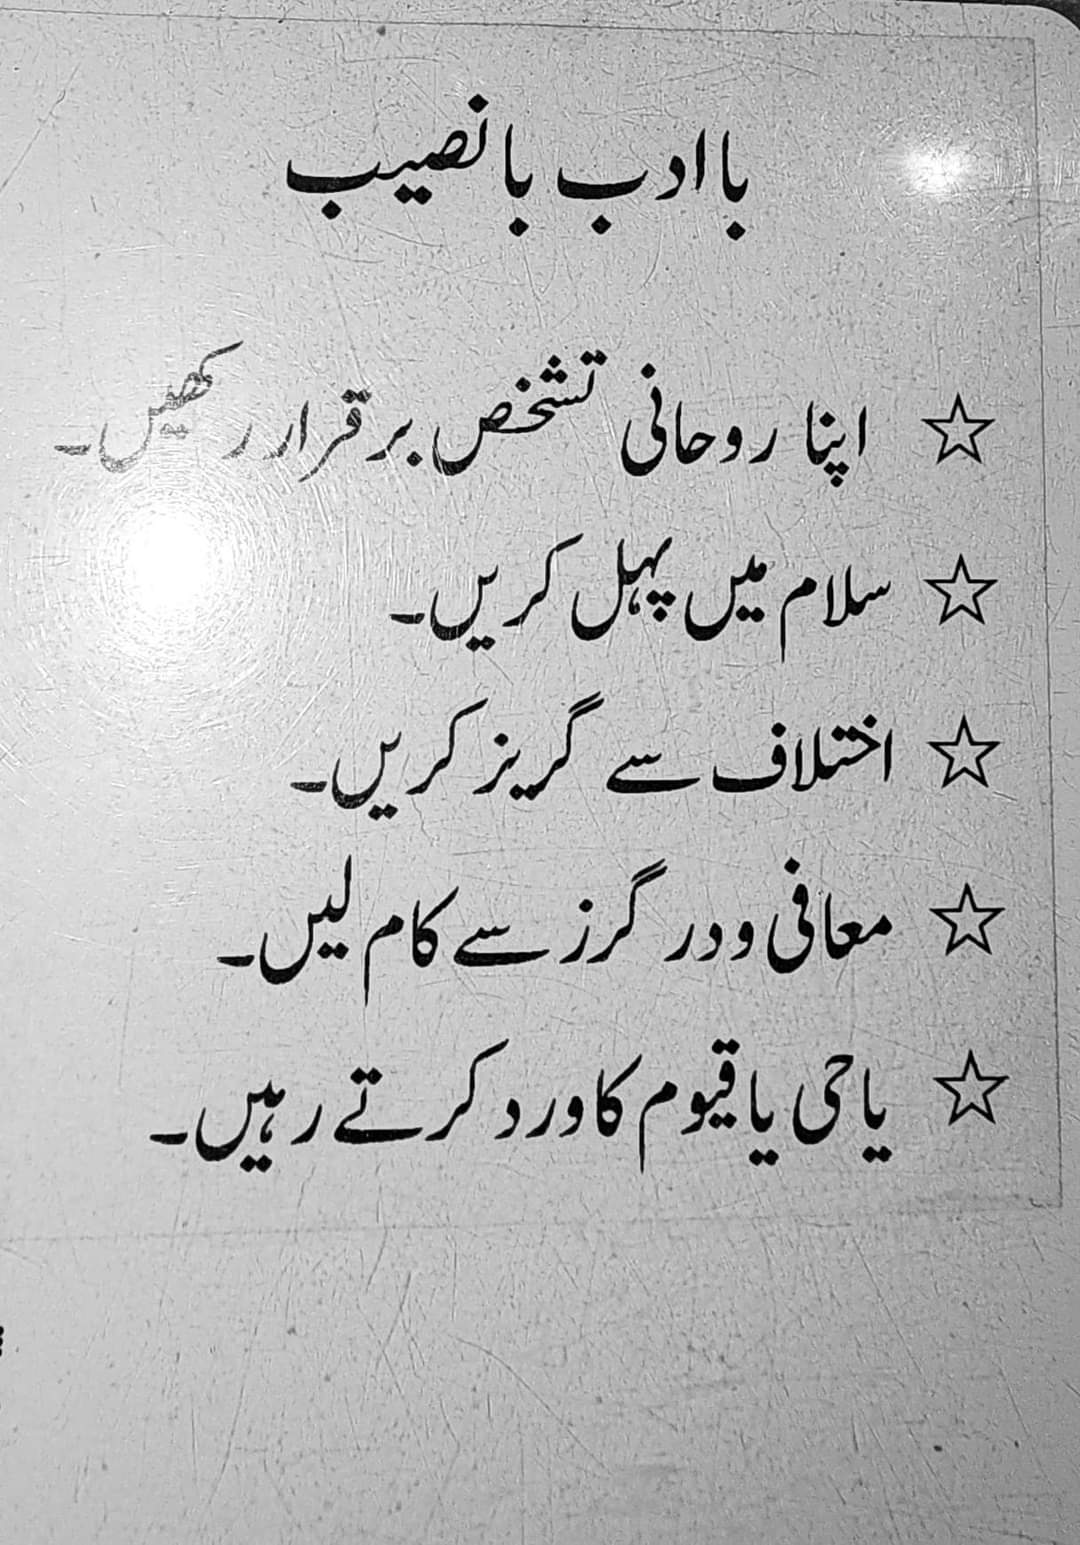 با ادب با نصیب
☆ اپنا روحانی تشخص برقرار رکھیں۔
☆ سلام میں پہل کریں۔
☆ اختلاف سے گریز کریں۔
☆ معافی و در گرز سے کام لیں۔
☆ یا حی یا قیوم کا ورد کرتے رہیں۔